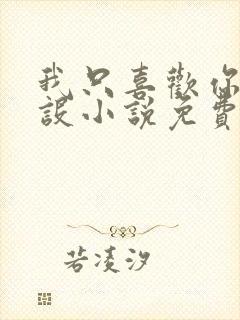 我只喜歡你
設小說免費
若凌汐